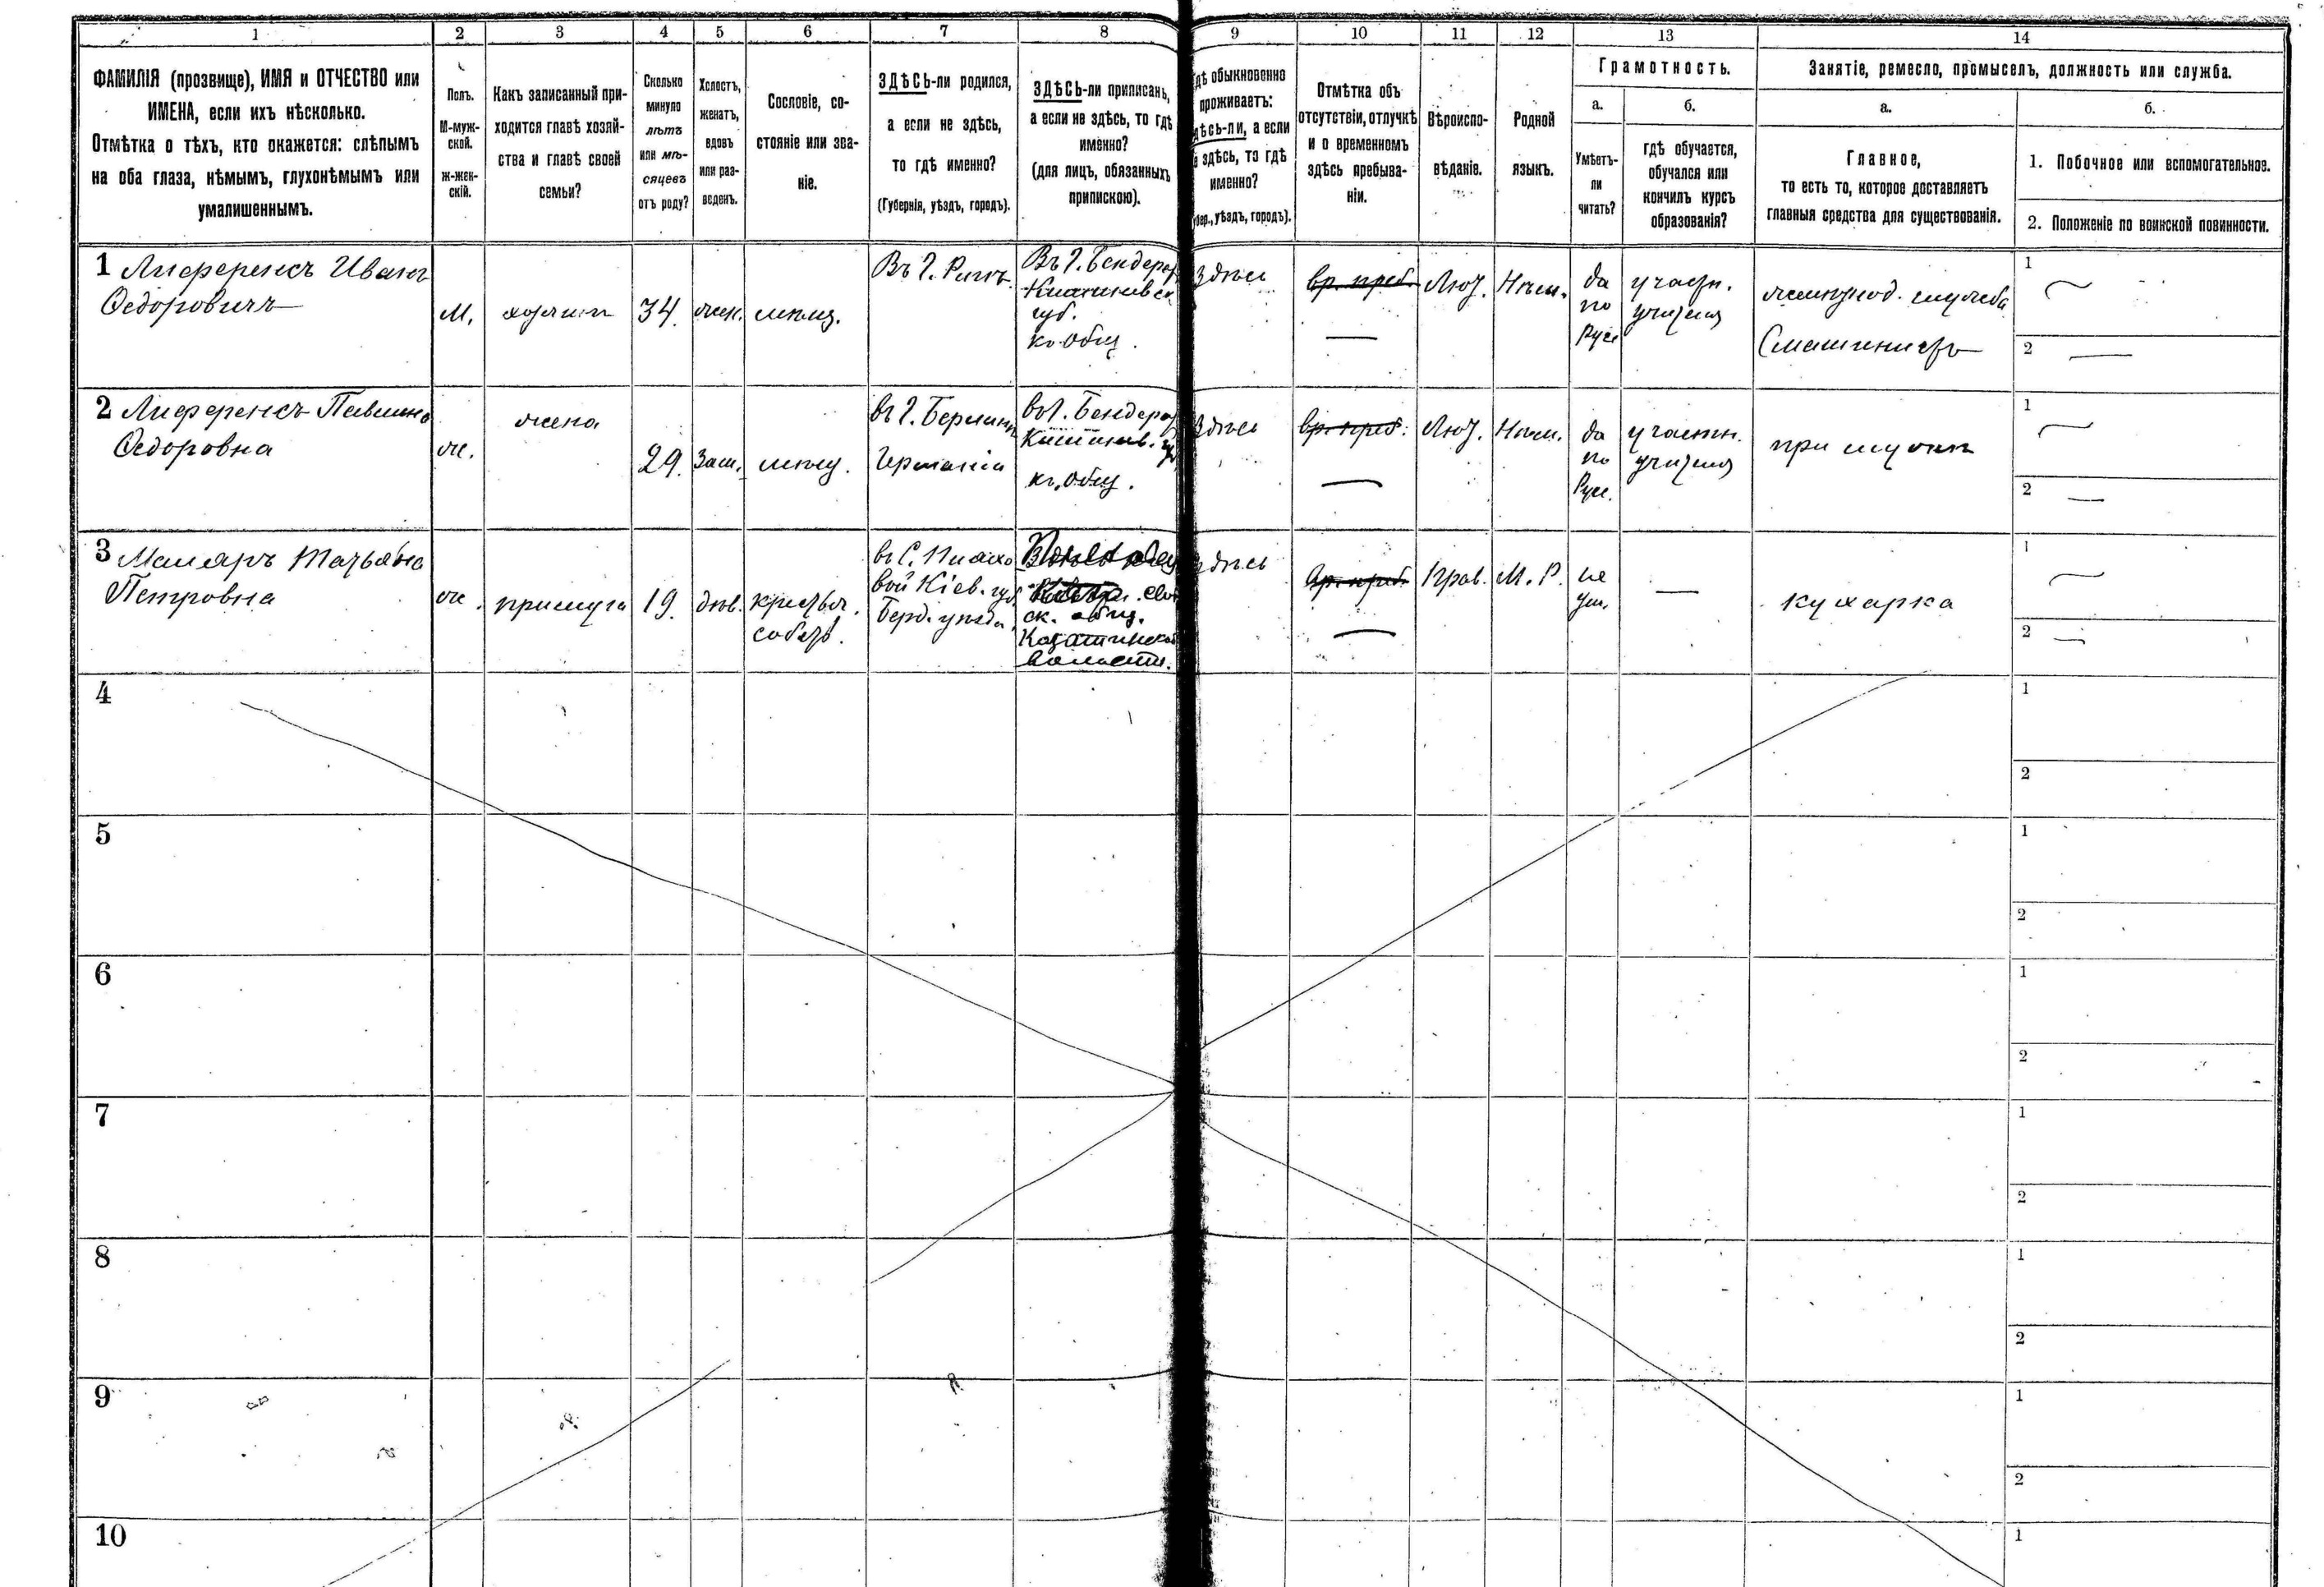 1 2 3 4 5 6 7 8 9 10 11 12 13 14
ФАМИЛІЯ (прозвище), ИМЯ и ОТЧЕСТВО или
ИМЕНА, если ихъ нѣсколько.
Отмѣтка о тѣхъ, кто окажется: слѣпымъ
на оба глаза, нѣмымъ, глухонѣмымъ или
умалишеннымъ.
Полъ.
М-муж-
ской.
ж-жен-
скій.
Какъ записанный при-
ходится главѣ хозяй-
ства и главѣ своей
семьи?
Сколько
минуло
лѣтъ
или мѣ-
сяцевъ
отъ роду?
Холостъ,
женатъ,
вдовъ
или раз-
веденъ.
Сословіе, со-
стояніе или зва-
ніе.
ЗДѢСЬ-ли родился,
а если не здѣсь,
то гдѣ именно?
(Губернія, уѣздъ, городъ).
ЗДѢСЬ-ли приписанъ,
а если не здѣсь, то гдѣ
именно?
(для лицъ, обязанныхъ
припискою).
гдѣ обыкновенно
проживаетъ:
здѣсь-ли, а если
не здѣсь, то гдѣ
именно?
уѣздъ, городъ).
Отмѣтка объ
отсутствіи, отлучкѣ
и о временномъ
здѣсь пребыва-
ніи.
Вѣроиспо-
вѣданіе.
Родной
языкъ.
Грамотность.
а.
Умѣетъ-
ли
читать?
б.
гдѣ обучается,
обучался или
кончилъ курсъ
образованія?
Занятіе, ремесло, промыселъ, должность или служба.
а.
Главное,
то есть то, которое доставляетъ
главныя средства для существованія.
б.
1. Побочное или вспомогательное.
2. Положеніе по воинской повинности.
1 Лиференсъ Иванъ
Ѳедоровичъ
М.
хозяинъ
34.
жен.
мѣщ.
Въ г. Ригѣ
Въ г. Бендерах
Кишиневск.
губ.
къ общ.
Здѣсь
вр. преб.
—
Лют.
Нѣм.
да
по
Русс
участ.
училища
желѣзнод. служба
(машинистъ
1
2 —
2 Лиференсъ Павлина
Ѳедоровна
ж.
жена
29.
Зам.
мѣщ.
въ г. Берлинѣ
Германіи
въ г. Бендерах
Кишинев. губ
къ общ.
Здѣсь
вр. преб.
—
Лют.
Нѣм.
да
по
Русс.
участк.
училища
при мужѣ
1
2 —
3 Маляръ Татьяна
Петровна
ж.
прислуга
19.
дѣв.
крестьян.
собств.
въ С.
Кіев. губ
Берд. уѣзда
ск. общ.
Козатинской
волости.
Здѣсь
вр. преб.
—
Прав.
М. Р.
не
ум.
—
кухарка
1
2 —
4
1
2
5
1
2
6
1
2
7
1
2
8
1
2
9
1
2
10
1